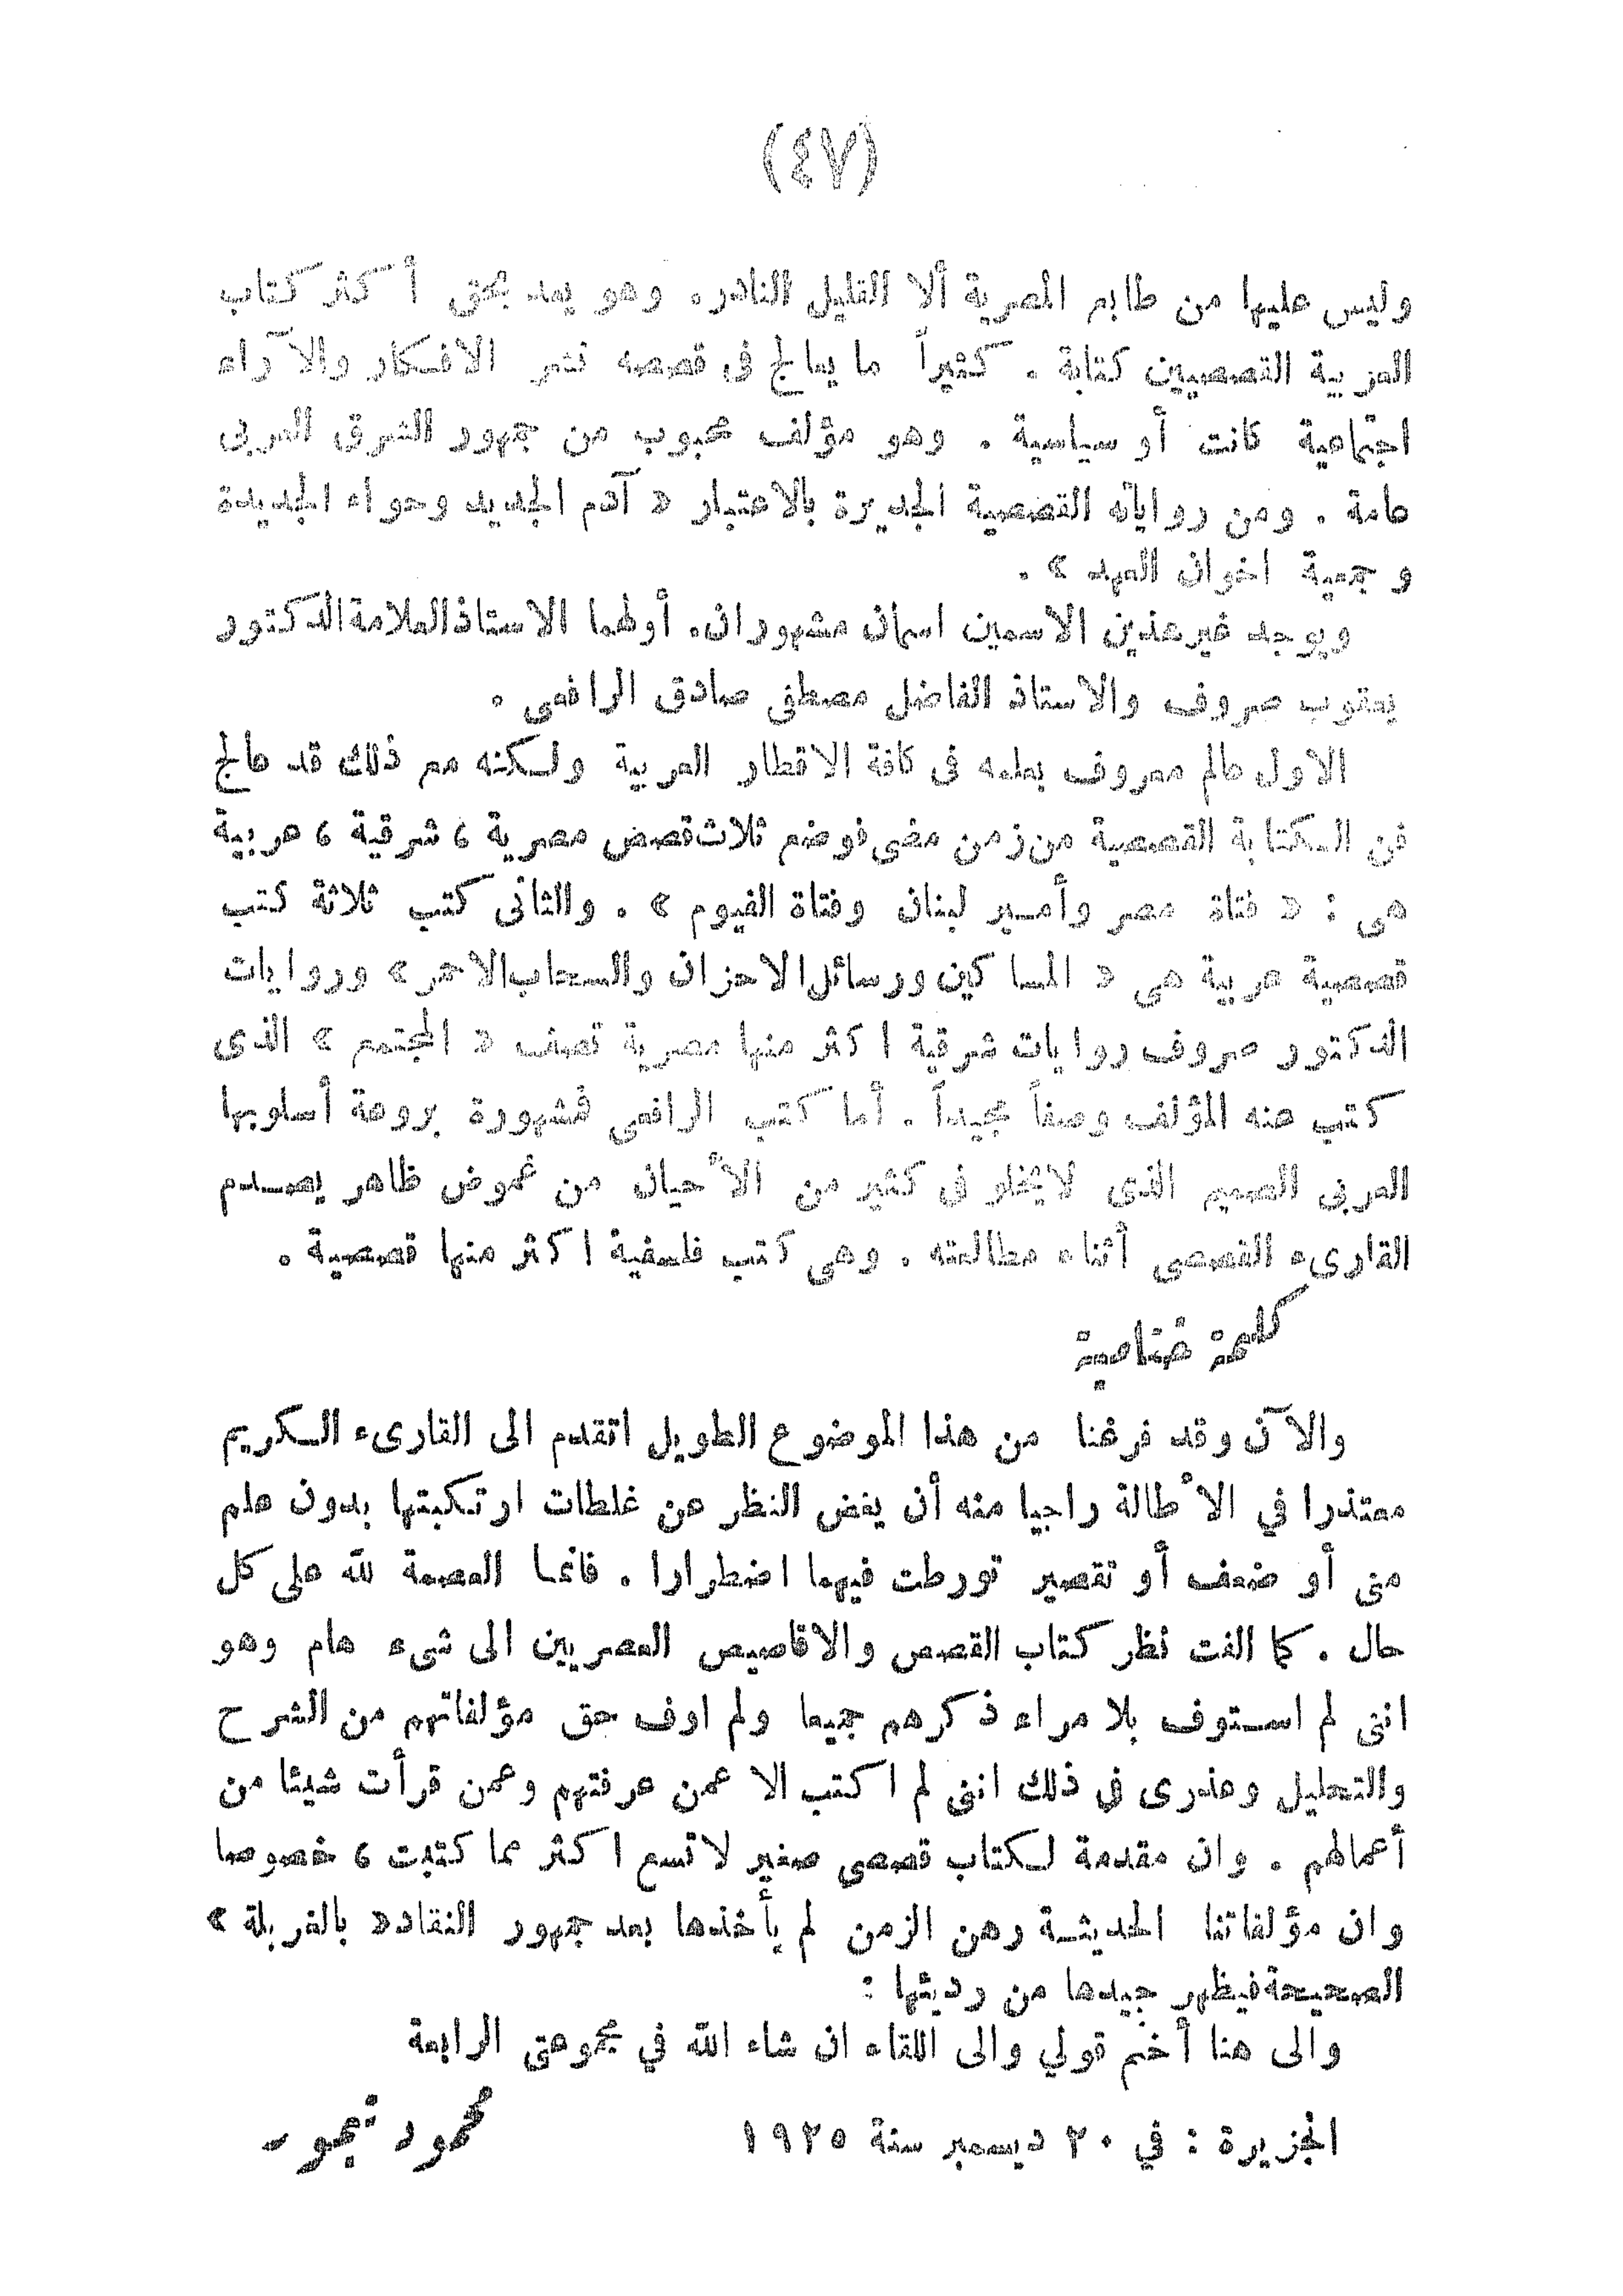 (٤٧)
وليس عليها من طابع المصرية ألا القليل النادر. وهو يعد بحق أكثر كتاب
العربية القصصيين كتابة . كثيراً ما يعالج فى قصصه نشر الافكار والآراء
اجتماعية كانت أو سياسية . وهو مؤلف محبوب من جمهور الشرق العربى
عامة . ومن رواياته القصصية الجديرة بالاعتبار « آدم الجديد وحواء الجديدة
وجمعية اخوان العهد » .
ويوجد غير هذين الاسمين اسمان مشهوران. أولهما الاستاذ العلامة الدكتور
يعقوب صروف والاستاذ الفاضل مصطفى صادق الرافعى .
الاول عالم معروف بعلمه فى كافة الاقطار العربية ولكنه مع ذلك قد عالج
فن الكتابة القصصية من زمن مضى فوضع ثلاث قصص مصرية ، شرقية ، عربية
هى : « فتاة مصر وأمير لبنان وفتاة الفيوم » . والثانى كتب ثلاثة كتب
قصصية عربية هى « المساكين ورسائل الاحزان والسحاب الاحمر » وروايات
الدكتور صروف روايات شرقية اكثر منها مصرية تصف « المجتمع » الذى
كتب عنه المؤلف وصفاً مجيداً . أما كتب الرافعى فمشهورة بروعة أسلوبها
العربى الصميم الذى لايخلو فى كثير من الأحيان من غموض ظاهر يصدم
القارىء القصصى أثناء مطالعته . وهى كتب فلسفية اكثر منها قصصية .
كلمة ختامية
والآن وقد فرغنا من هذا الموضوع الطويل اتقدم الى القارىء الكريم
معتذرا في الأطالة راجيا منه أن يغض النظر عن غلطات ارتكبتها بدون علم
منى أو ضعف أو تقصير تورطت فيهما اضطرارا . فانما العصمة لله على كل
حال . كما الفت نظر كتاب القصص والاقاصيص المصريين الى شىء هام وهو
اننى لم استوف بلا مراء ذكرهم جميعا ولم اوف حق مؤلفاتهم من الشرح
والتحليل وعذرى في ذلك اننى لم اكتب الا عمن عرفتهم وعمن قرأت شيئا من
أعمالهم . وان مقدمة لكتاب قصصى صغير لا تسع اكثر مما كتبت ، خصوصا
وان مؤلفاتنا الحديثة رهن الزمن لم يأخذها بعد جمهور النقاد « بالغربلة »
الصحيحة فيظهر جيدها من رديئها :
والى هنا أختم قولي والى اللقاء ان شاء الله في مجموعتى الرابعة
الجزيرة : في ٢٠ ديسمبر سنة ١٩٢٥ محمود تيمور